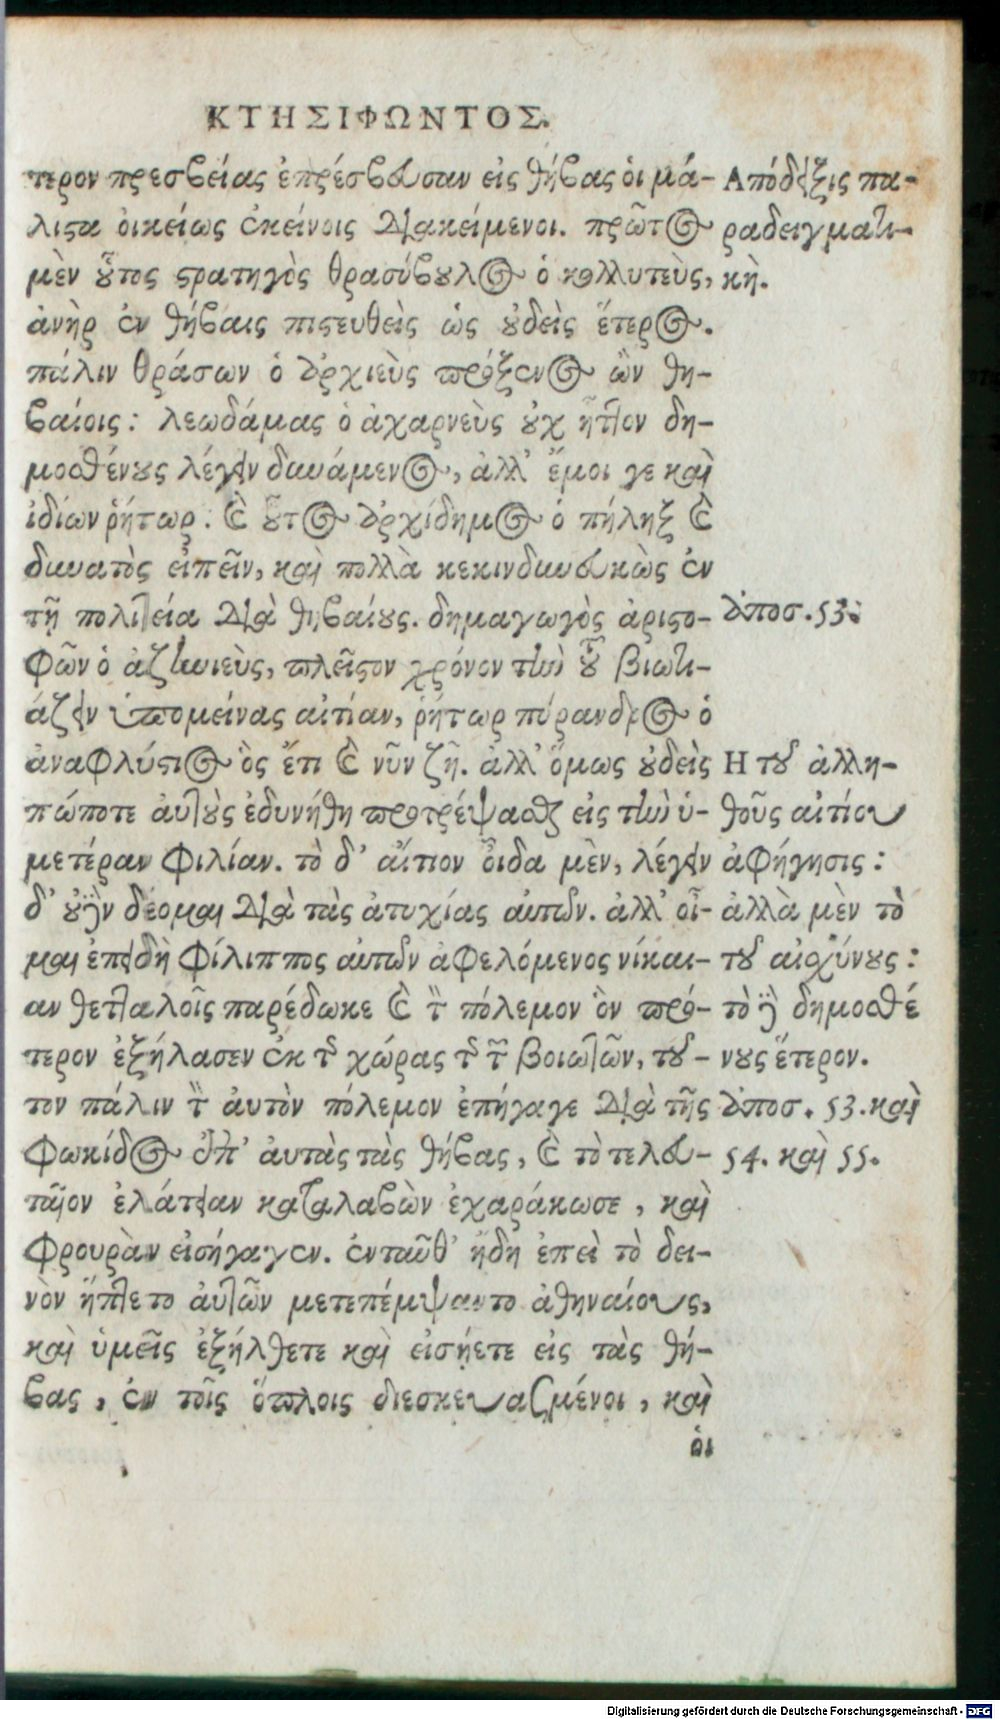 ΚΤΗΣΙΦΩΝΤΟΣ.
τερον πρεσβείας ἐπρέσβευσαν εἰς θήβας οἱ μά-
λιστα οἰκείως ἐκείνοις διακείμενοι. πρῶτος
μὲν οὗτος στρατηγὸς θρασύβουλος ὁ κολλυτεὺς,
ἀνὴρ ἐν θήβαις πιστευθεὶς ὡς οὐδεὶς ἕτερος.
πάλιν θράσων ὁ ἀρχιεὺς πρόξενος ὢν θη-
βαίοις: λεωδάμας ὁ ἀχαρνεὺς οὐχ ἧττον δη-
μοσθένους λέγειν δυνάμενος, ἀλλ' ἔμοι γε καὶ
ἰδίων ῥήτωρ. καὶ οὗτος ἀρχίδημος ὁ πήληξ καὶ
δυνατὸς εἰπεῖν, καὶ πολλὰ κεκινδυνευκὼς ἐν
τῇ πολιτεία διὰ θηβαίους. δημαγωγὸς ἀριστο-
φῶν ὁ ἀζηνιεὺς, πλεῖστον χρόνον τὴν τοῦ βιωτι-
άζειν ὑπομείνας αἰτίαν, ῥήτωρ πύρανδρος ὁ
ἀναφλύστιος ὃς ἔτι καὶ νῦν ζῇ. ἀλλ' ὅμως οὐδεὶς
πώποτε αὐτοὺς ἐδυνήθη προτρέψασθαι εἰς τὴν ὑ-
μετέραν φιλίαν. τὸ δ' αἴτιον οἶδα μὲν, λέγειν
δ' οὐδὲν δέομαι διὰ τὰς ἀτυχίας αὐτῶν. ἀλλ' οἶ-
μαι ἐπειδὴ φίλιππος αὐτῶν ἀφελόμενος νίκαι-
αν θετταλοῖς παρέδωκε καὶ τὸν πόλεμον ὃν πρό-
τερον ἐξήλασεν ἐκ τῆς χώρας τῆς τῶν βοιωτῶν, τοῦ-
τον πάλιν τὸν αὐτὸν πόλεμον ἐπήγαγε διὰ τῆς
φωκίδος ἐπ' αὐτὰς τὰς θήβας, καὶ τὸ τελευ-
ταῖον ἐλάτειαν καταλαβὼν ἐχαράκωσε, καὶ
φρουρὰν εἰσήγαγεν. ἐνταῦθ' ἤδη ἐπεὶ τὸ δει-
νὸν ἥπτετο αὐτῶν μετεπέμψαντο ἀθηναίους,
καὶ ὑμεῖς ἐξήλθετε καὶ εἰσῄετε εἰς τὰς θή-
βας, ἐν τοῖς ὅπλοις διεσκευασμένοι, καὶ
οἱ
Απόδειξις πα-
ραδειγματι-
κή.
ἀποσ. 53:
Η τοῦ ἀλλη-
θοῦς αἰτίου
ἀφήγησις:
ἀλλὰ μὲν τὸ
τοῦ αἰσχύνους:
τὸ γὰρ δημοσθέ
νους ἕτερον.
ἀποσ. 53. καὶ
54. καὶ 55.
Digitalisierung gefördert durch die Deutsche Forschungsgemeinschaft - DFG